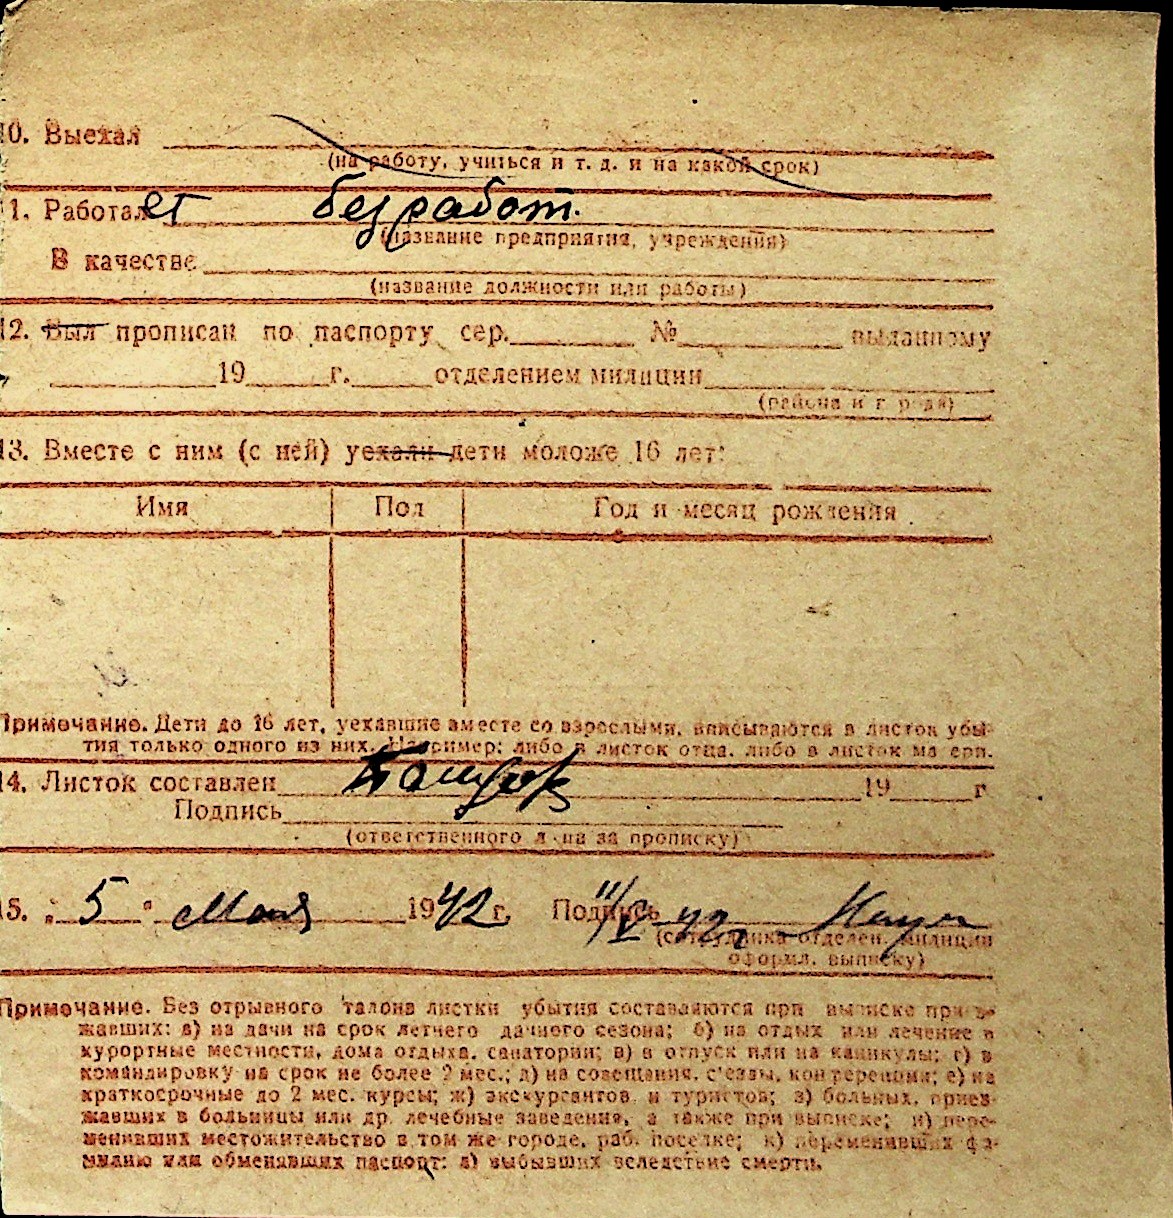 10. Выехал
(на работу, учиться и т. д. и на какой срок)
11. Работает безработ.
(название предприятия, учреждения)
В качестве
(название должности или работы)
12. Был прописан по паспорту сер. № выданному
19 г. отделением милиции
(района и города)
13. Вместе с ним (с ней) уехали дети моложе 16 лет:
Имя Пол Год и месяц рождения
Примечание. Дети до 16 лет, уехавшие вместе со взрослыми, вписываются в листок убы-
тия только одного из них. Например: либо в листок отца, либо в листок матери.
14. Листок составлен 19 г
Подпись
(ответственного л-ца за прописку)
15. „5" Мая 1942 г. Подпись 11/V 42
(сотрудника отделен. милиции
оформл. выписку)
Примечание. Без отрывного талона листки убытия составляются при выписке приез-
жавших: а) на дачи на срок летнего дачного сезона; б) на отдых или лечение в
курортные местности, дома отдыха, санатории; в) в отпуск или на каникулы; г) в
командировку на срок не более 2 мес.; д) на совещания, с'езды, конференции; е) на
краткосрочные до 2 мес. курсы; ж) экскурсантов и туристов; з) больных, приез-
жавших в больницы или др. лечебные заведения, а также при выписке; и) пере-
менивших местожительство в том же городе, раб. поселке; к) переменивших фа-
милию или обменявших паспорт; л) выбывших вследствие смерти.